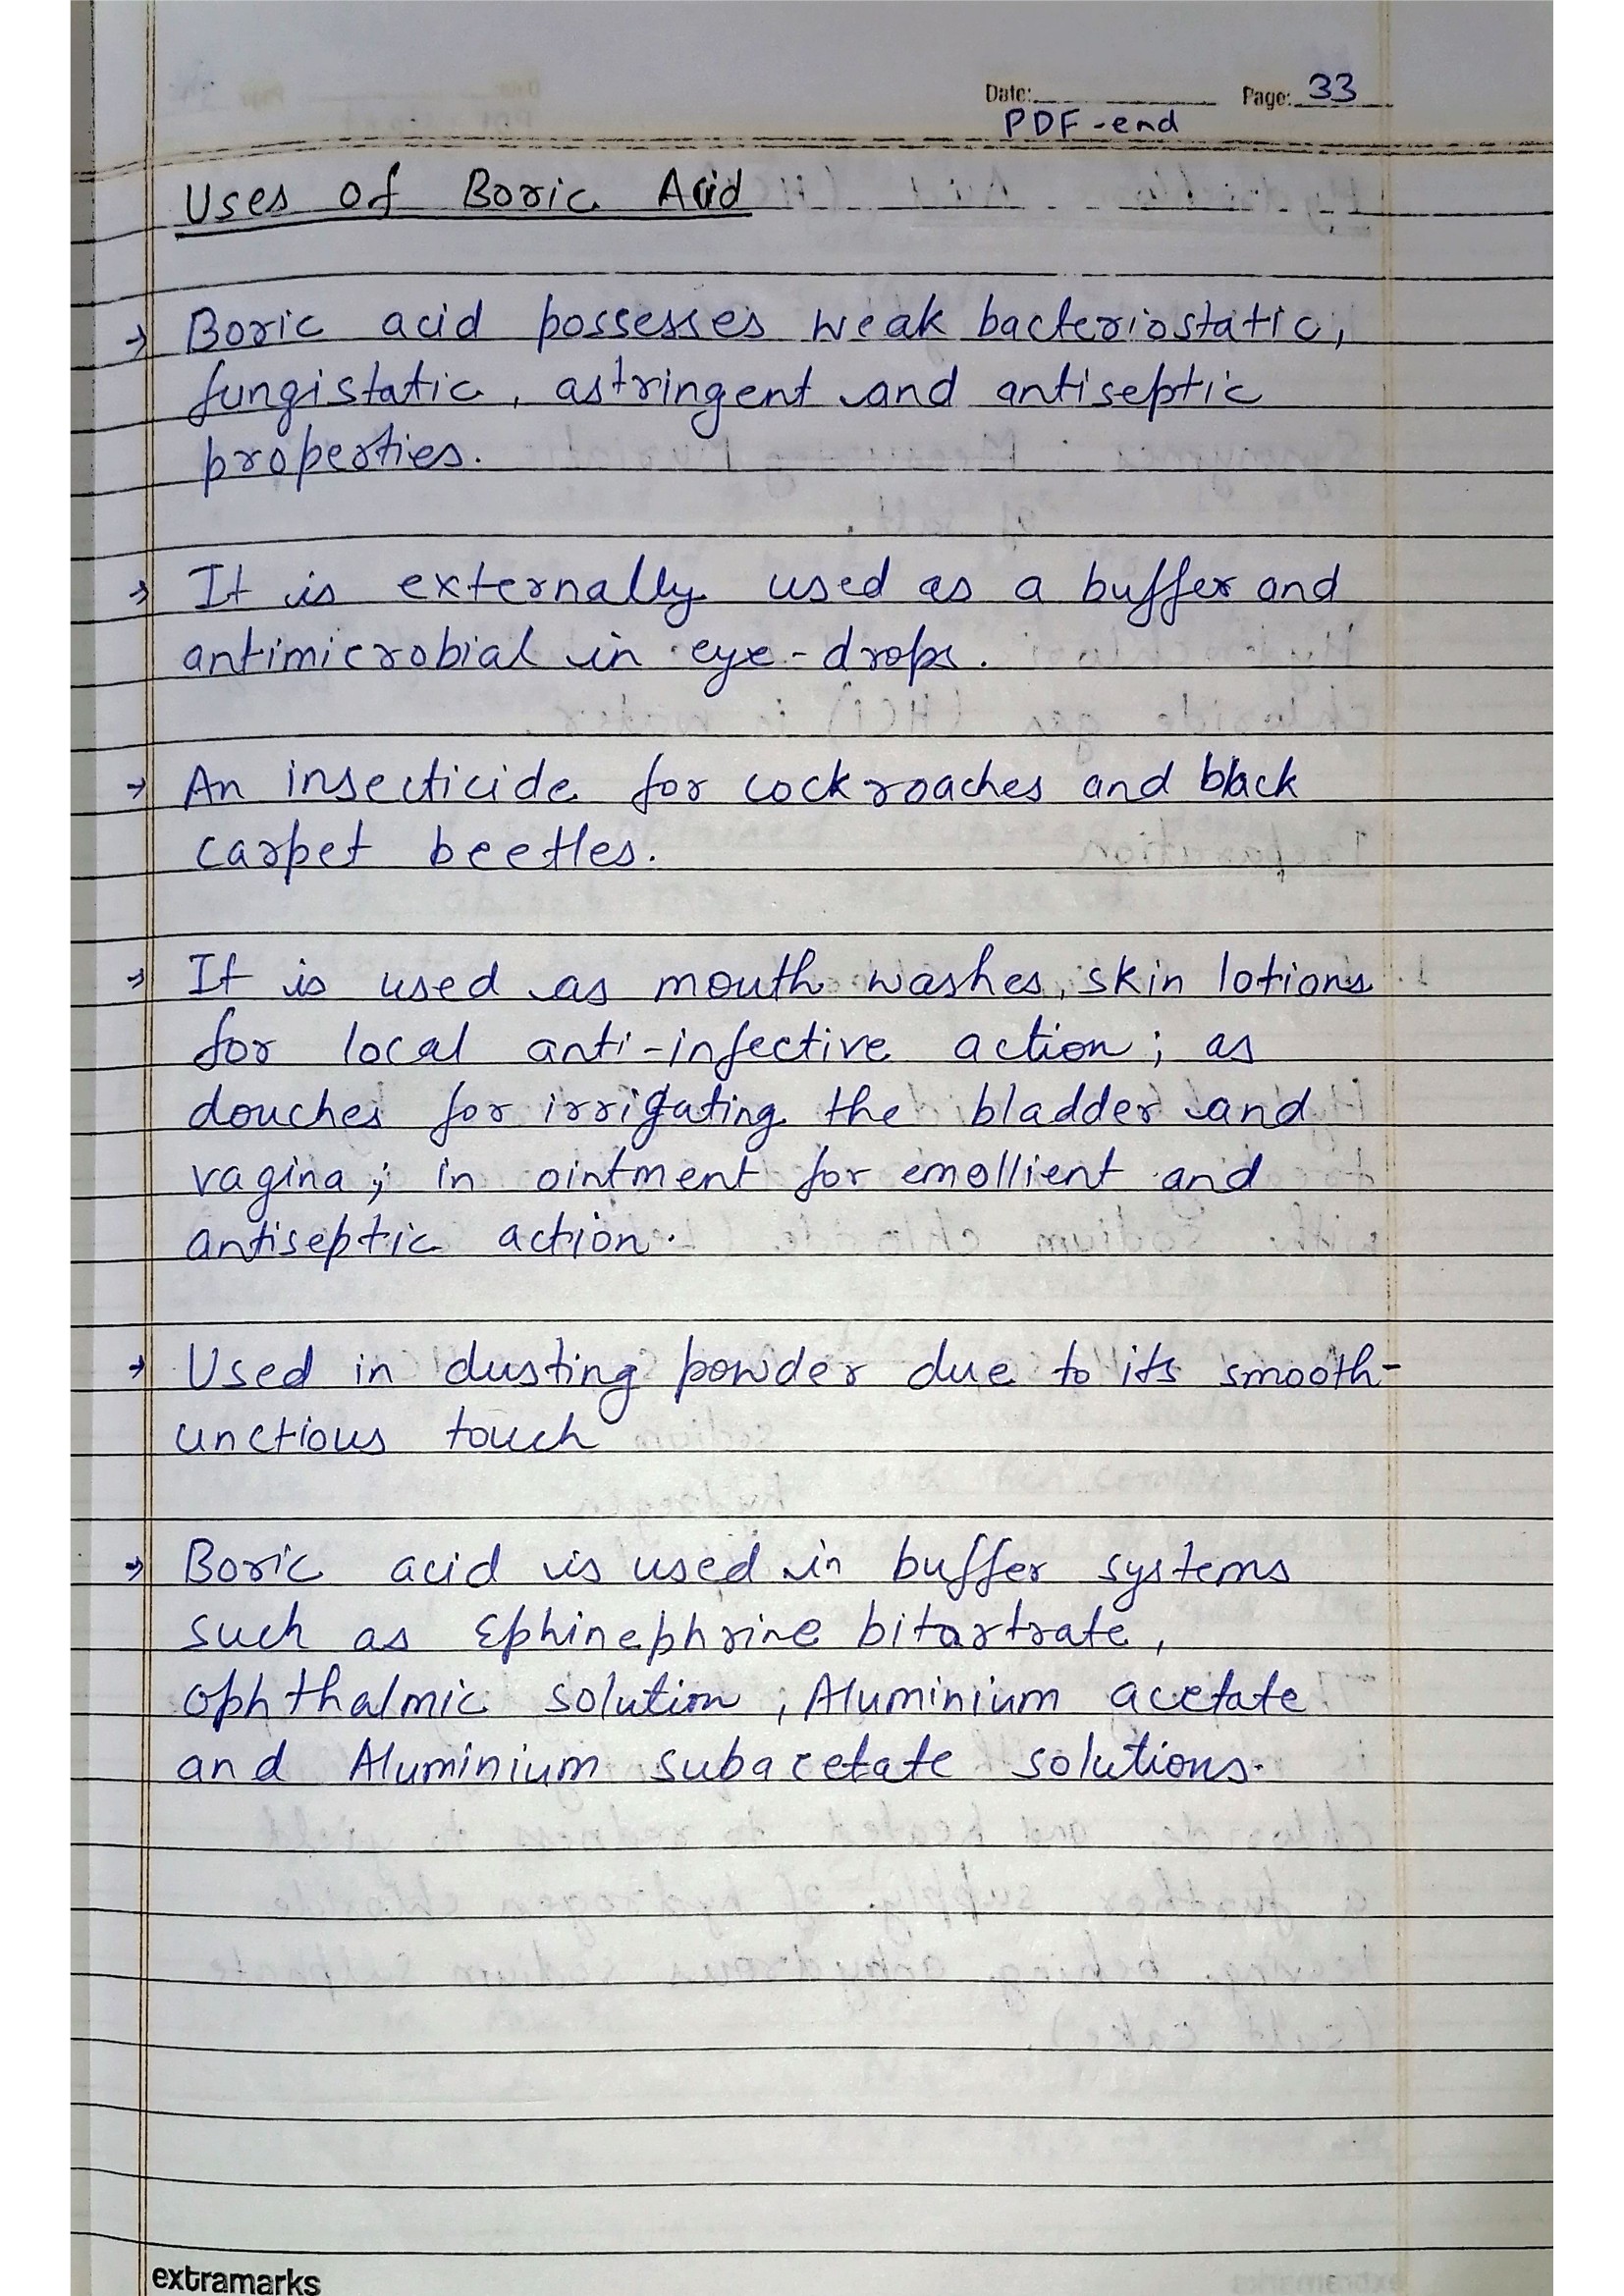 Date: Page: 33
PDF-end
Uses of Boric Acid
→ Boric acid possesses weak bacteriostatic,
fungistatic, astringent and antiseptic
properties.
→ It is externally used as a buffer and
antimicrobial in eye-drops.
→ An insecticide for cockroaches and black
carpet beetles.
→ It is used as mouth washes, skin lotions
for local anti-infective action; as
douches for irrigating the bladder and
vagina; in ointment for emollient and
antiseptic action.
→ Used in dusting powder due to its smooth-
unctious touch
→ Boric acid is used in buffer systems
such as Ephinephrine bitartrate,
ophthalmic solution, Aluminium acetate
and Aluminium subacetate solutions.
extramarks